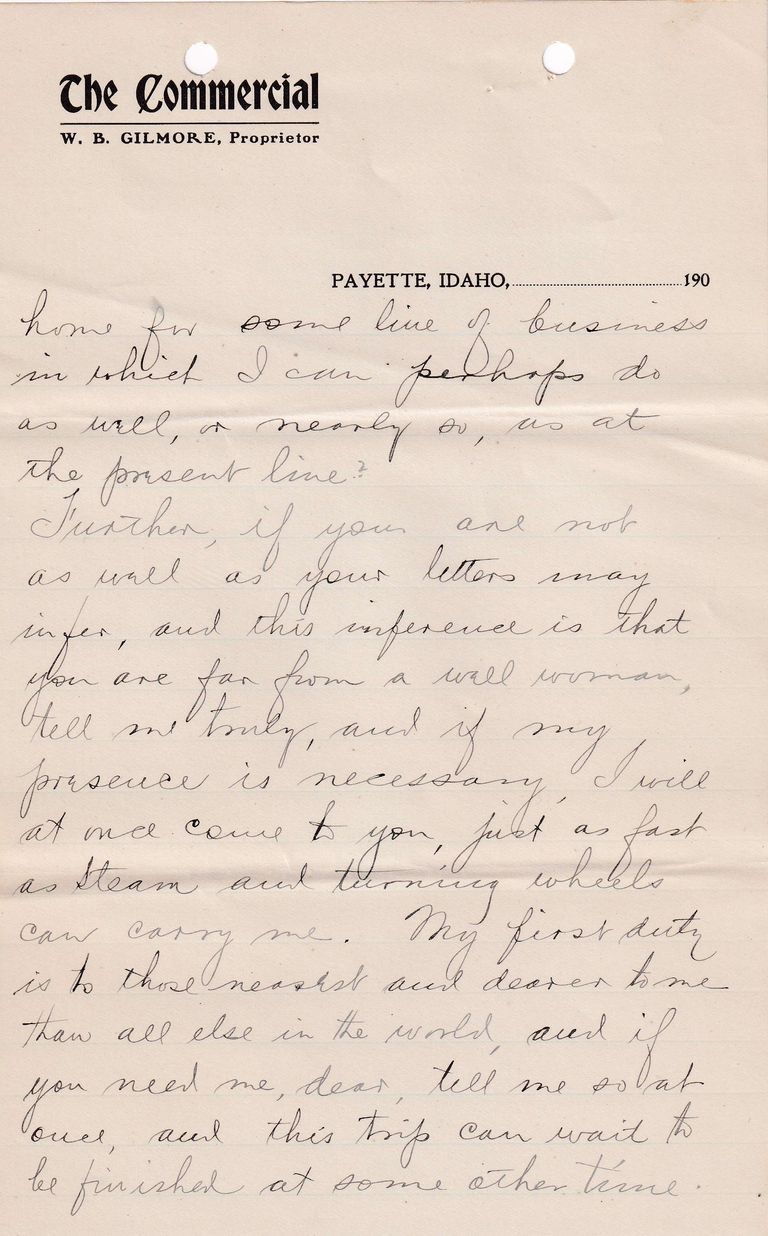 The Commercial
W. B. GILMORE, Proprietor
PAYETTE, IDAHO, 190
home for some line of business
in which I can perhaps do
as well, or nearly so, as at
the present line?
Further, if you are not
as well as your letters may
infer, and this inference is that
you are far from a well woman,
tell me truly, and if my
presence is necessary, I will
at once come to you, just as fast
as steam and turning wheels
can carry me. My first duty
is to those nearest and dearer to me
than all else in the world, and if
you need me, dear, tell me so at
once, and this trip can wait to
be finished at some other time.